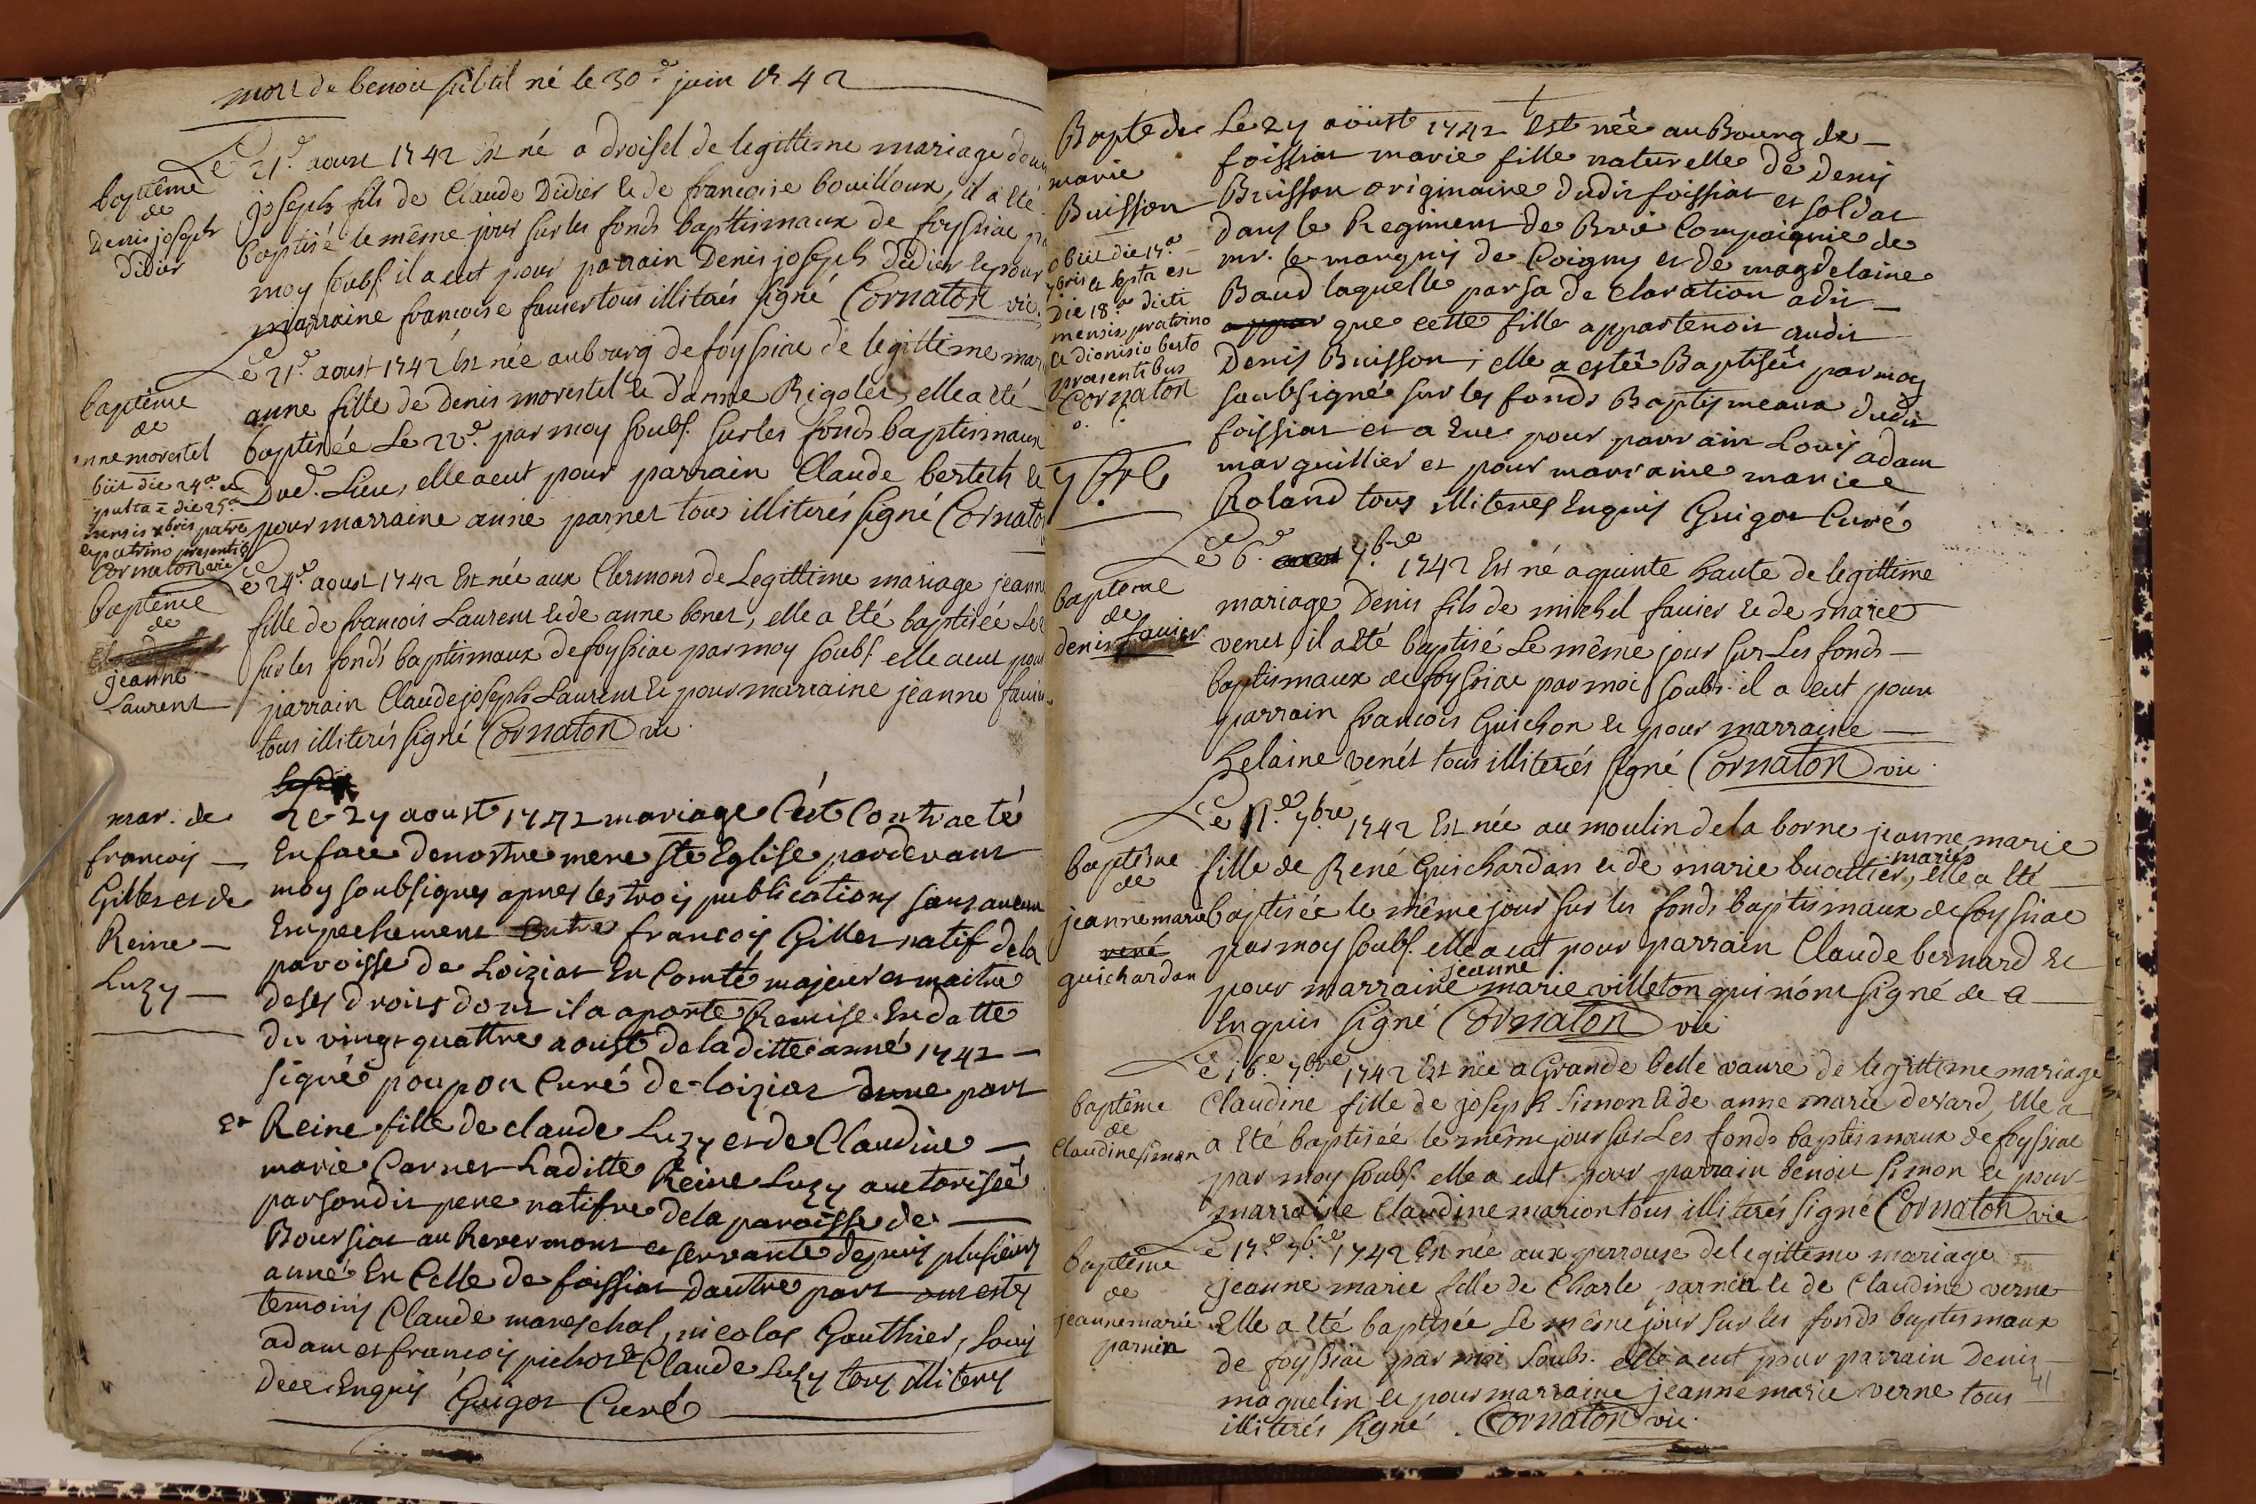 mort de benoit subtil né le 30.e juin 1742
Le 21.e aoust 1742 Est né a droisel de legittime mariage denis
joseph fils de Claude Didier & de francoise bouilloux, il a été
baptisé le même jour sur les fonds baptismaux de foyssiac par
moy soubs. il a eut pour parrain Denis joseph didier & pour
marraine francoise favier tous illiterés signé Cornaton vic.
baptême
de
denis joseph
didier
Le 21.e aoust 1742 Est née au bourg de foyssiac de legittime mar
anne fille de Denis morestel & d'anne Rigolet, elle a été
baptisée Le 22.e par moy soubs. sur les fonds baptismaux
Dud. Lieu, elle a eut pour parrain Claude berteth &
pour marraine anne parnet tous illiterés signé Cornaton
baptême
de
anne morestel
obiit die 24.a et
sepulta e die 25.a
mensis xbris patre
et patrino presentib
Cornaton vic
Le 24.e aoust 1742 Est née aux Clermons de Legittime mariage jeanne
fille de francois Laurent & de anne bonet, elle a été baptisée Le
sur les fonds baptismaux de foyssiac par moy soubs. elle a eut pour
parrain Claude joseph Laurent & pour marraine jeanne favier
tous illiterés signé Cornaton vic.
baptême
de
jeanne
Laurent
Le 27 aoust 1742 mariage C'est Contracté
En face de nostre mere Ste Eglise pardevant
moy soubsignes apres les trois publications sans aucun
Empechement Entre francois Gilles natif de la
paroisse de Loiziat En Comté majeur et maitre
de ses droits dont il a aporté Remise En datte
du vingt quattre aoust de la ditte anné 1742
signé poupon Curé de Loiziat dune part
Et Reine fille de claude Luzy et de Claudine
marie Carnet Laditte Reine Luzy autorisée
par sondit pere natifve de la paroisse de
Boursiat au Revermont et servante depuis plusieurs
anné En Celle de foissiat d'autre part ont estés
temoins Claude mareschal, nicolas Gauthier, Louis
adam et francois pichot & Claude Luzy tous illiterés
de ce Enquis Guigot Curé
mar. de
francois
Gilles et de
Reine
Luzy
Le 27 aoust 1742 Est née au Bourg de
foissiat marie fille naturelle de Denis
Buisson originaire dudit foissiat et soldat
dans le Regiment de Brie Compaignie de
mr. le marquis de Coigny et de magdelaine
Baud laquelle par sa de Claration a dit
que cette fille appartenoit audit
Denis Buisson; elle a estée Baptisée par moy
soubsigné sur les fonds Baptismeaux dudit
foissiat et a Eue pour parrain Louis adam
marguillier et pour marraine marie
Roland tous illiterés Enquis Guigot Curé
Bapte de
marie
Buisson
obiit die 17.a
7bris et septa est
die 18.a dicti
mensis patrino
et dionisio berto
praesentibus
Cornaton
Le 6.e 7.bre 1742 Est né a quinte haute de legittime
mariage Denis fils de michel favier & de marie
venet il a été baptisé Le même jour sur Les fonds
baptismaux de foyssiac par moi soubs. il a eut pour
parrain francois Guichon & pour marraine
helaine venet tous illiterés signé Cornaton vic.
baptême
de
denis favier
Le 11.e 7bre 1742 Est née au moulin de la borne jeanne marie
fille de René Guichardan & de marie buattier, mariés elle a été
baptisée le même jour sur les fonds baptismaux de foyssiac
par moy soubs. elle a eut pour parrain Claude bernard &
pour marraine jeanne marie villeton qui n'ont signé de ce
Enquis signé Cornaton vic
baptême
de
jeanne marie
rené
guichardan
Le 16.e 7bre 1742 Est née a Grande belle vavre de legittime mariage
Claudine fille de joseph Simon & de anne marie devard, elle a
a été baptisée le même jour sur Les fonds baptismaux de foyssiac
par moy soubs. elle a eut pour parrain benoit Simon & pour
marraine Claudine marion tous illiterés signé Cornaton vic
baptême
de
Claudine simon
Le 17.e 7b.e 1742 Est née aux perrouse de legittime mariage
jeanne marie fille de Charle parnin & de Claudine verne
Elle a été baptisée Le même jour sur les fonds baptismaux
de foyssiac par moi soubs. elle a eut pour parrain Denis
maquelin & pour marraine jeanne marie verne tous
illiterés signé. Cornaton vic.
baptême
de
jeanne marie
parnin
41